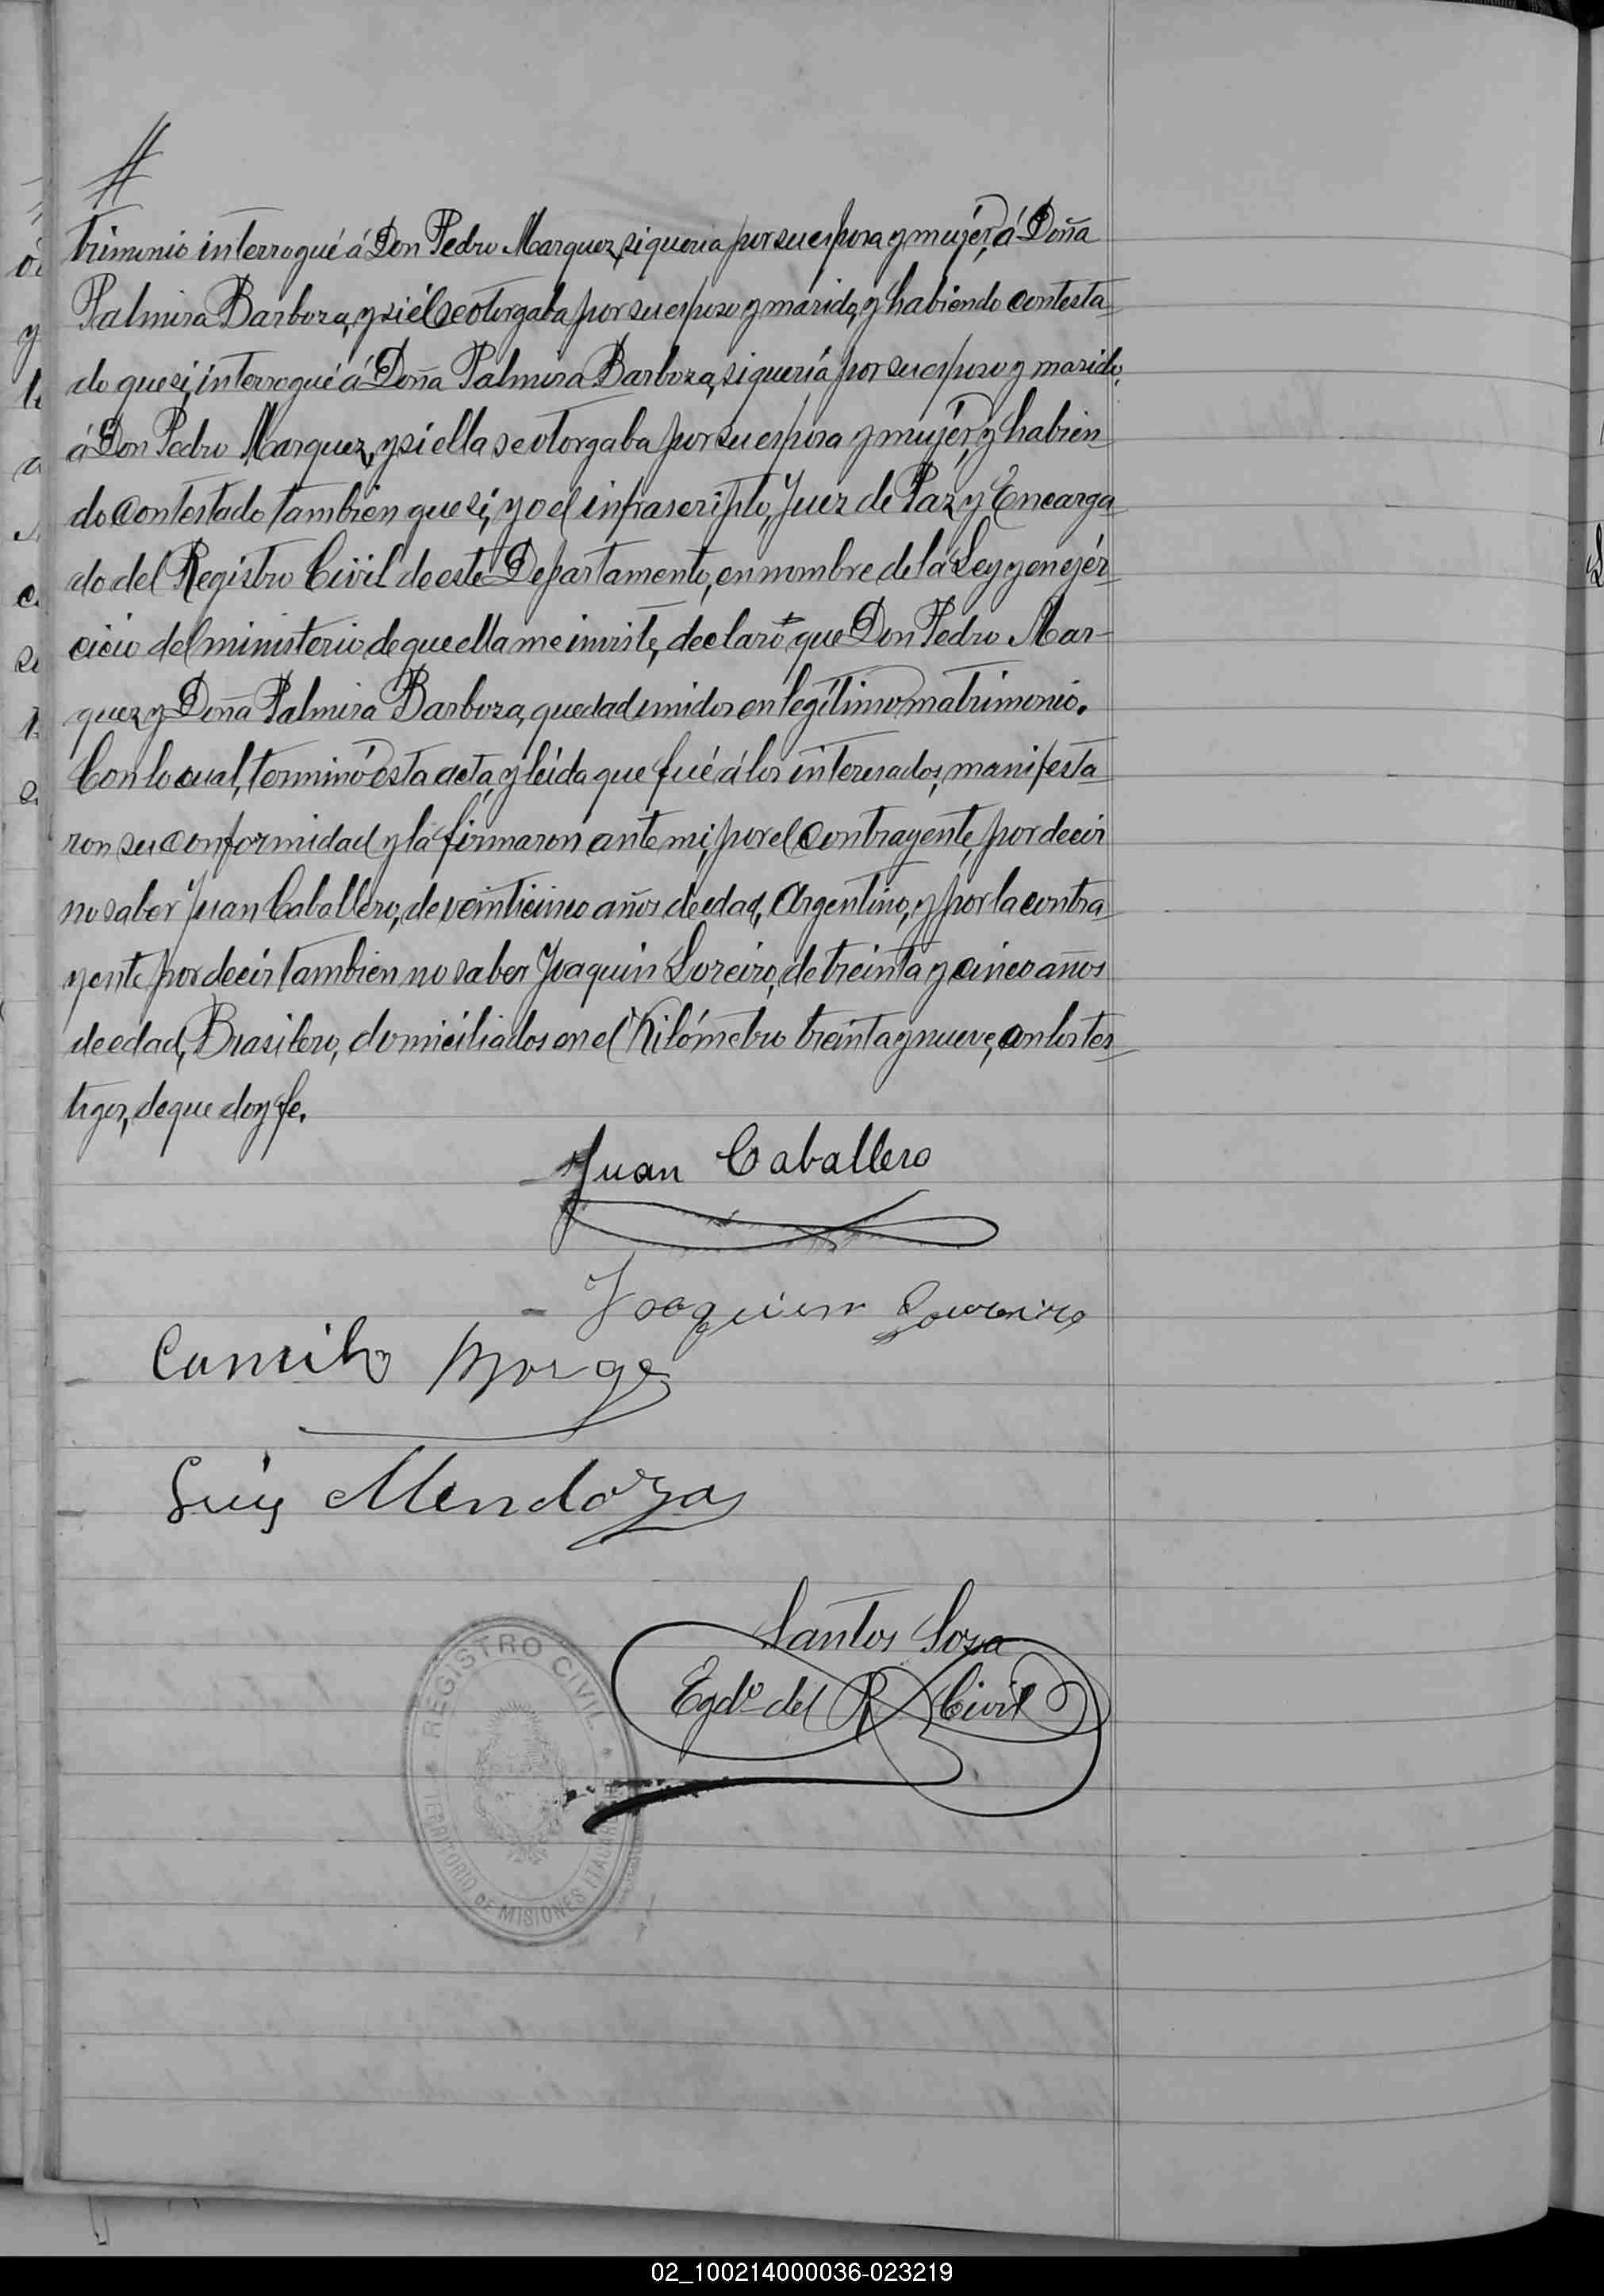 trimonio interrogué á Don Pedro Marquez, si queria por su esposa y mujer, á Doña
Palmira Barboza, y si él se otorgaba por su esposo y marido, y habiendo contesta
do que si, interrogué á Doña Palmira Barboza, si quería por su esposo y marido,
á Don Pedro Marquez, y si ella se otorgaba por su esposa y mujer, y habien
do contestado tambien que si, yo el infrascripto, Juez de Paz y Encarga
do del Registro Civil de este Departamento, en nombre de la Ley y en ejér
cicio del ministerio de que ella me inviste, declaro que Don Pedro Mar-
quez y Doña Palmira Barboza, quedad unidos en legítimo matrimonio.
Con lo cual, terminó esta acta, y leida que fué á los interesados, manifesta
ron su conformidad y la firmaron ante mi, por el contrayente, por decir
no saber Juan Caballero, de veinticinco años de edad, Argentino, y por la contra
yente por decir tambien no saber Joaquin Loreiro, de treinta y cinco años
de edad, Brasilero, domiciliados en el Kilómetro treinta y nueve, con los tes
tigos, de que doy fe.
Juan Caballero
Joaquin Loureiro
Camilo Borge
Luis Mendoza
Santos Sosa
Egdo del R. Civil
REGISTRO CIVIL
TERRITORIO DE MISIONES
02_100214000036-023219